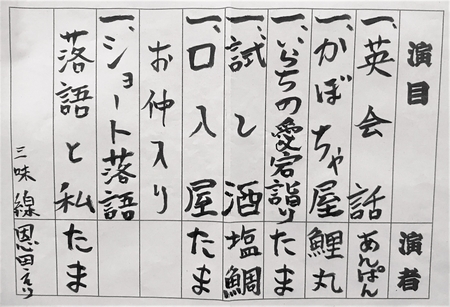 演目 演者
一、英会話 あんぱん
一、かぼちゃ屋 鯉丸
一、いらちの愛宕詣り たま
一、試し酒 塩鯛
一、口入屋 たま
お仲入り
一、ショート落語
落語と私 たま
三味線 恩田えり